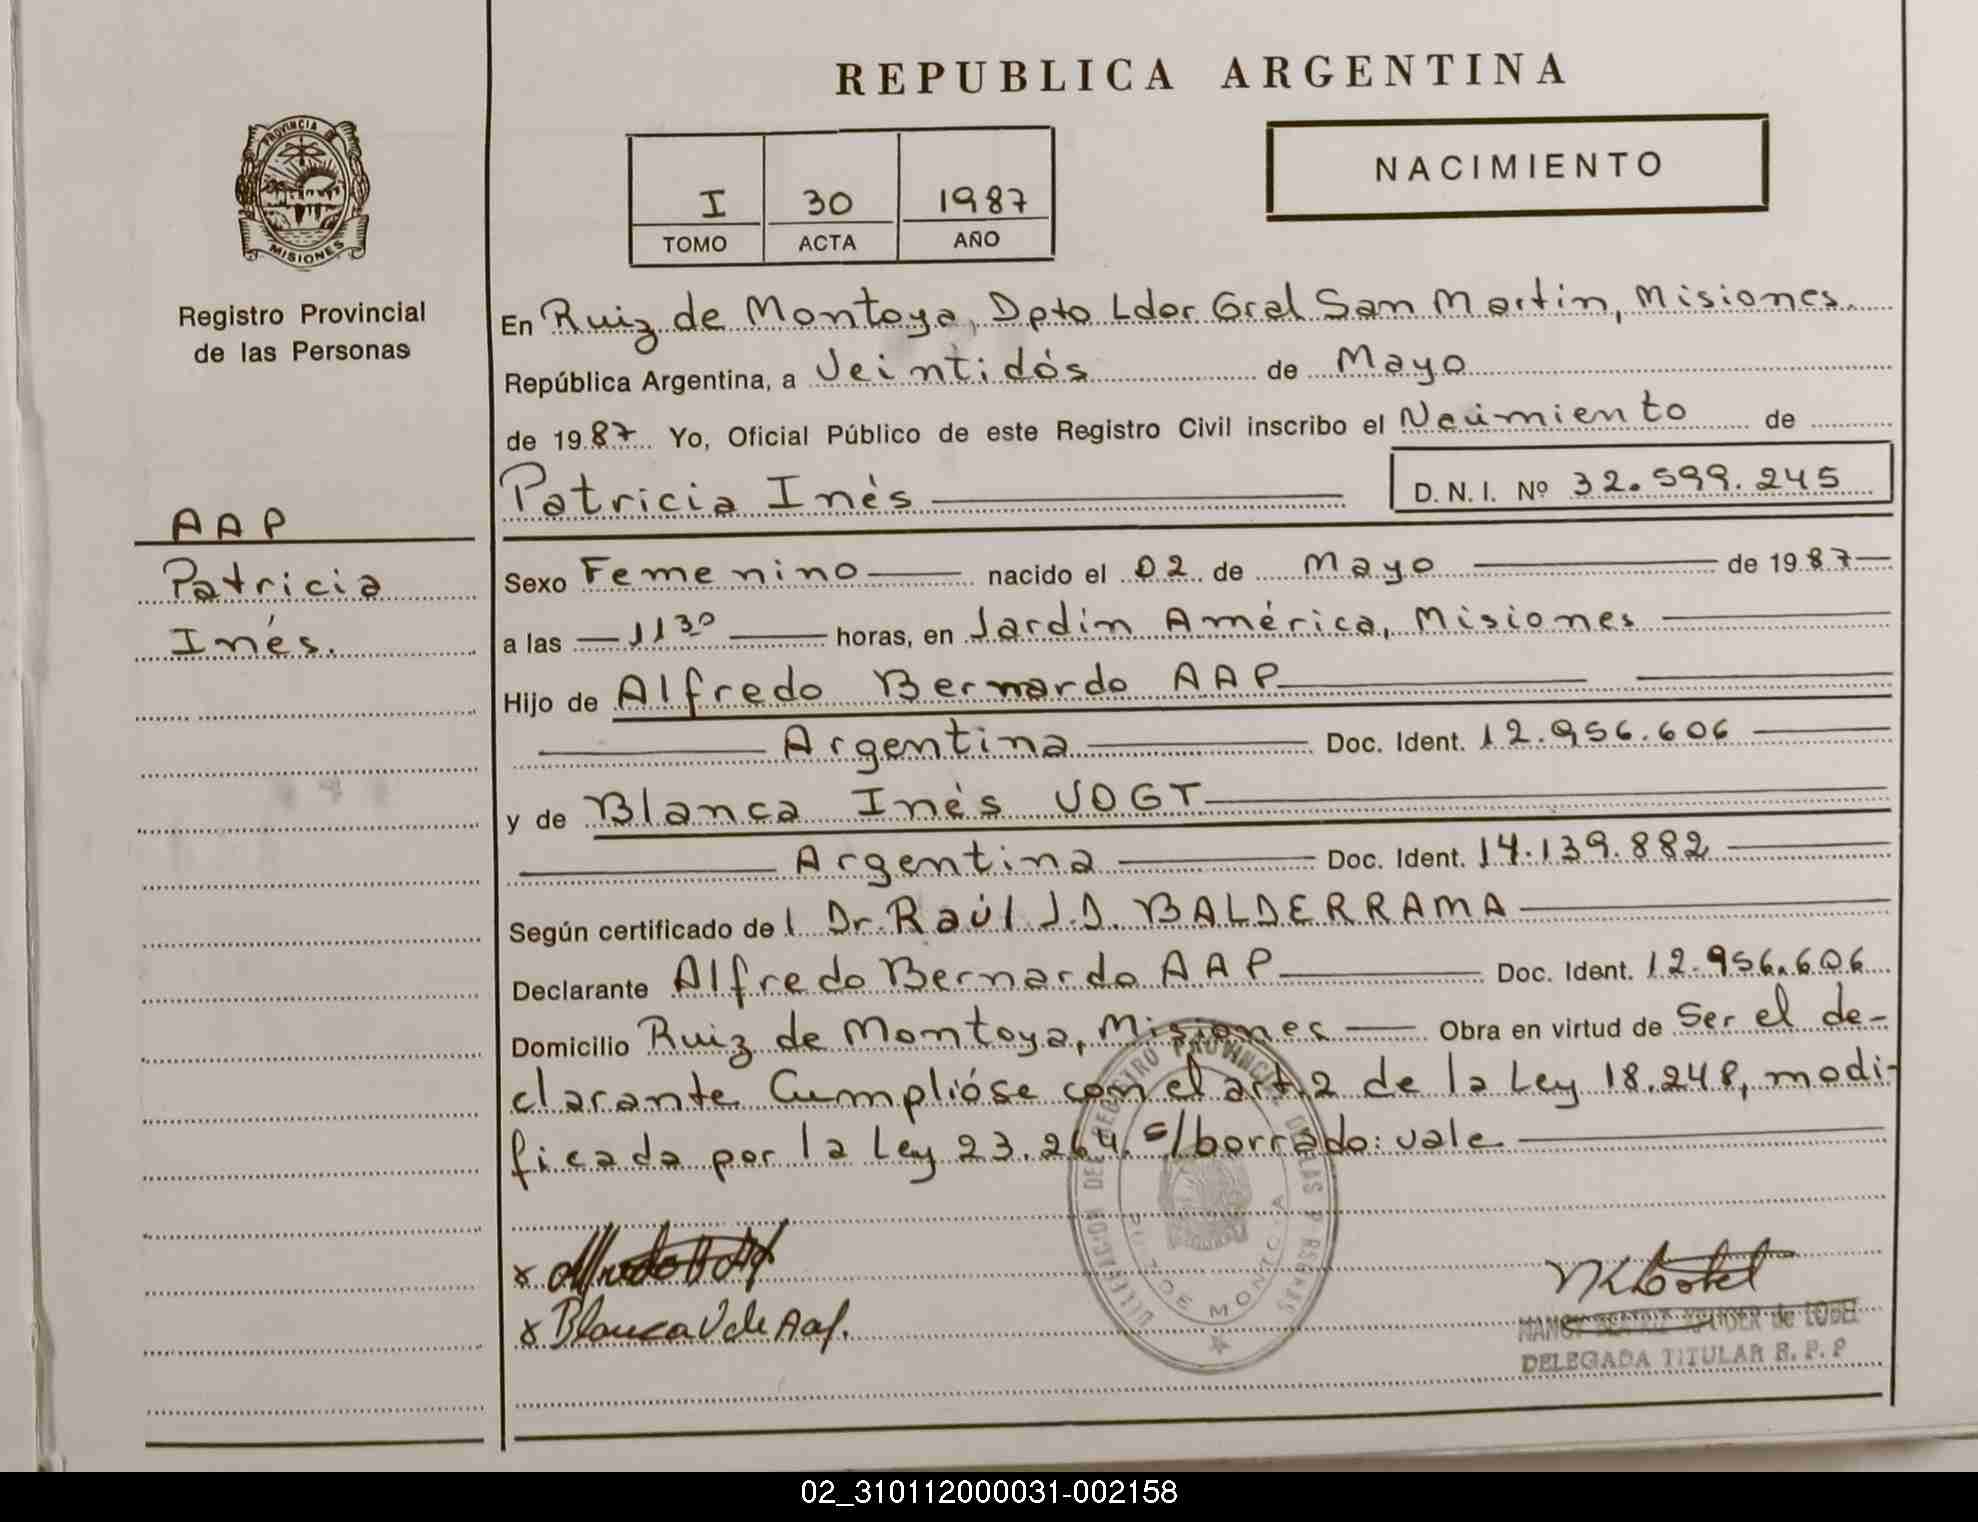 REPUBLICA ARGENTINA
PROVINCIA DE
MISIONES
Registro Provincial
de las Personas
I 30 1987
TOMO ACTA AÑO
NACIMIENTO
En Ruiz de Montoya, Dpto Ldor Gral San Martin, Misiones.
República Argentina, a Veintidós de Mayo
de 1987 Yo, Oficial Público de este Registro Civil inscribo el Nacimiento de
Patricia Inés D. N. I. Nº 32.599.245
AAP
Patricia
Inés.
Sexo Femenino nacido el 02 de Mayo de 1987
a las 11 30 horas, en Jardín América, Misiones
Hijo de Alfredo Bernardo AAP
Argentina Doc. Ident. 12.956.606
y de Blanca Inés VOGT
Argentina Doc. Ident. 14.139.882
Según certificado de l Dr. Raúl J.D. BALDERRAMA
Declarante Alfredo Bernardo AAP Doc. Ident. 12.956.606
Domicilio Ruiz de Montoya, Misiones Obra en virtud de Ser el de-
clarante Cumplióse con el art 2 de la Ley 18.248, modi-
ficada por la Ley 23.264. c/borrado: vale
DELEGACION DEL REGISTRO PROVINCIAL DE LAS PERSONAS
RUIZ DE MONTOYA
x Alfredo B Aap
x Blanca V de Aap.
NANCY BEATRIZ de
DELEGADA TITULAR R. P. P
02_310112000031-002158